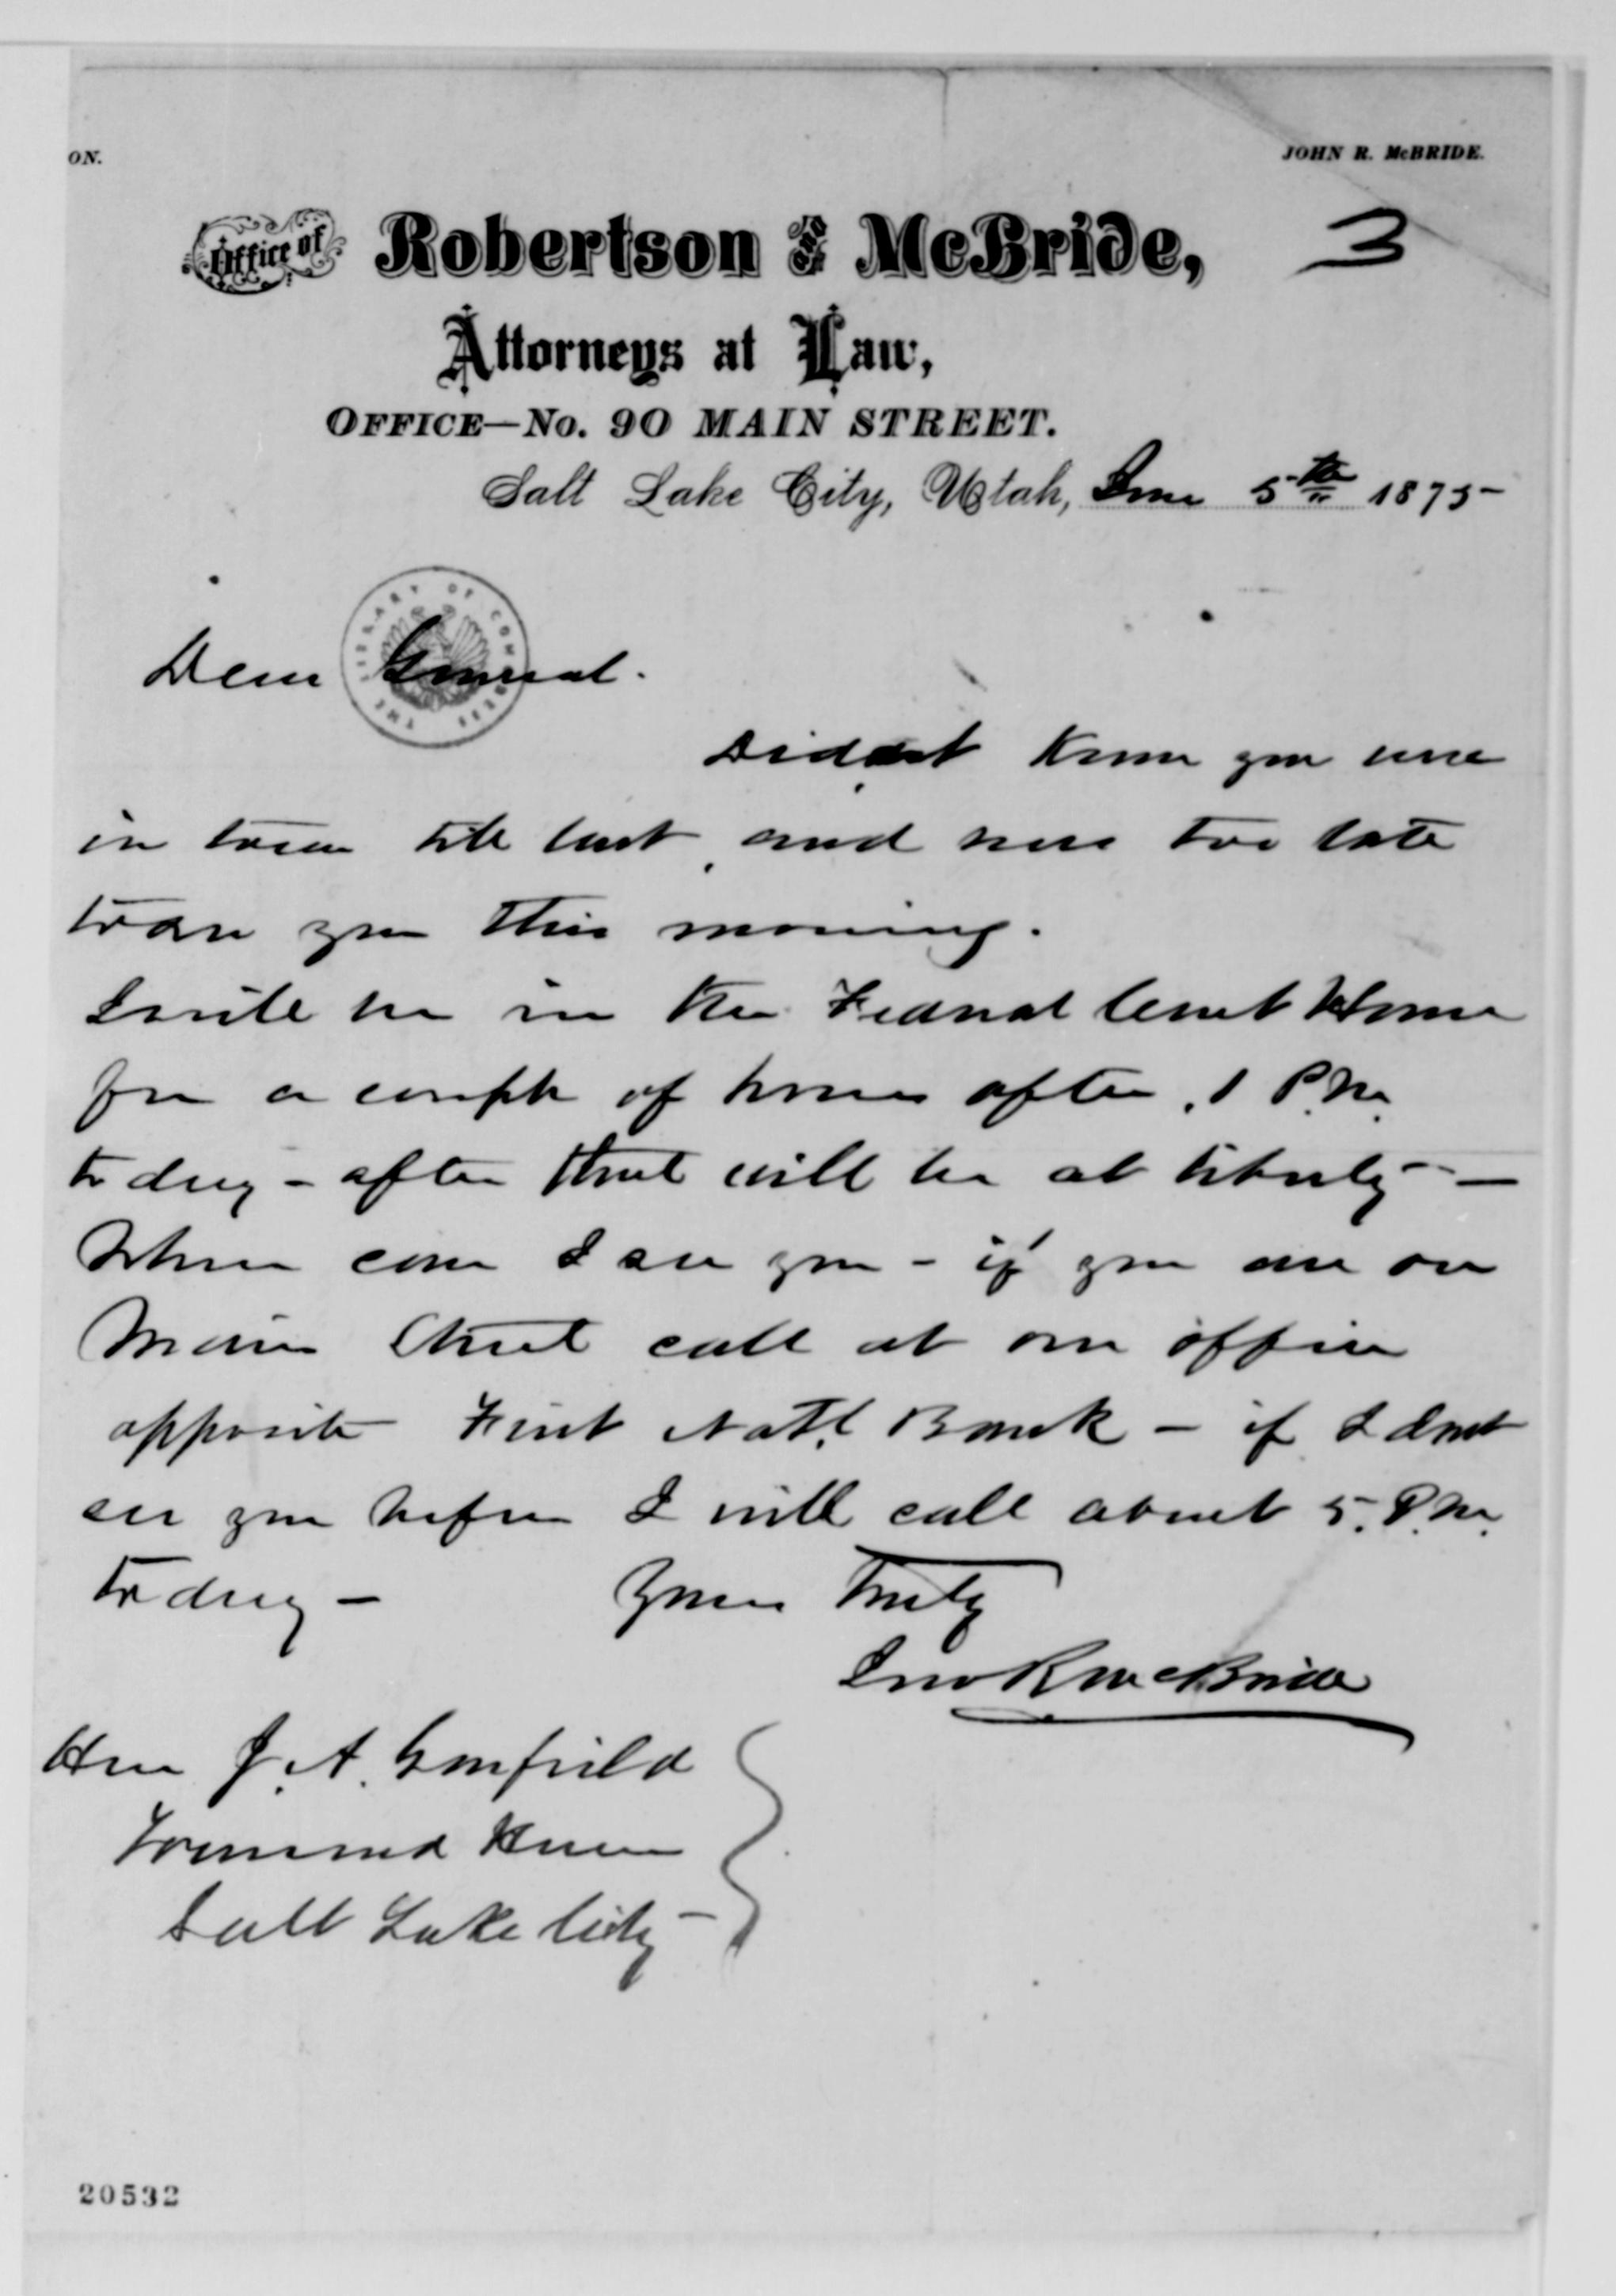 ON.
JOHN R. McBRIDE.
Office of Robertson and McBride, 3
Attorneys at Law,
OFFICE—No. 90 MAIN STREET.
Salt Lake City, Utah, June 5th 1875
THE LIBRARY OF CONGRESS
Dear General.
Didnt know you were
in town till last, and was too late
to see you this morning.
I will be in the Federal Court House
for a couple of hours after 1 P.M.
to day - after that will be at liberty —
Where can I see you - if you are on
Main Street call at our office
opposite First Natl Bank - if I dont
see you before I will call about 5. P.M.
to day - Yours Truly
Jno R McBride
Hon J. A. Garfield
Townsend House
Salt Lake City -
20532